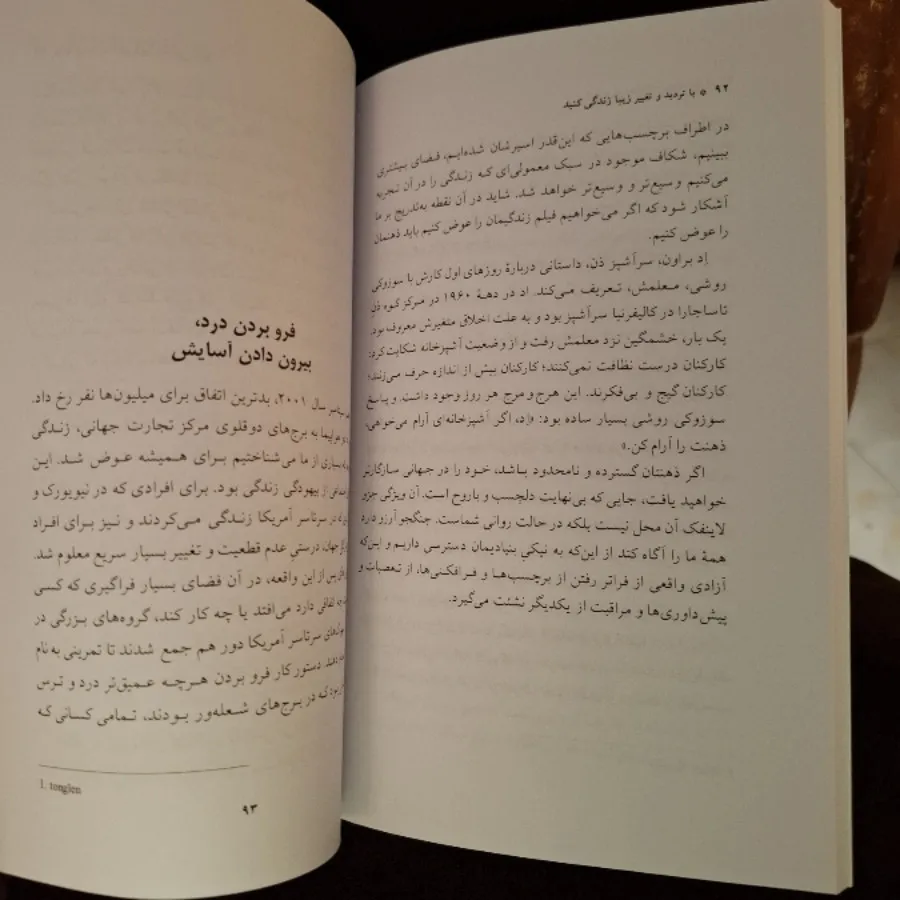 ۹۲ * با تردید و تغییر زیبا زندگی کنید
در اطراف برچسب‌هایی که این‌قدر اسیرشان شده‌ایم، فضای بیشتری
ببینیم، شکاف موجود در سبک معمولی‌ای که زندگی را در آن تجربه
می‌کنیم وسیع‌تر و وسیع‌تر خواهد شد. شاید در آن نقطه به‌تدریج بر ما
آشکار شود که اگر می‌خواهیم فیلم زندگیمان را عوض کنیم باید ذهنمان
را عوض کنیم.
اِد براون، سرآشپز ذن، داستانی دربارهٔ روزهای اول کارش با سوزوکی
روشی، معلمش، تعریف می‌کند. اد در دههٔ ۱۹۶۰ در مرکز کوه ذنِ
تاساجارا در کالیفرنیا سرآشپز بود و به علت اخلاق متغیرش معروف بود.
یک بار، خشمگین نزد معلمش رفت و از وضعیت آشپزخانه شکایت کرد:
کارکنان درست نظافت نمی‌کنند؛ کارکنان بیش از اندازه حرف می‌زنند؛
کارکنان گیج و بی‌فکرند. این هرج‌ومرج هر روز وجود داشت. و پاسخ
سوزوکی روشی بسیار ساده بود: «اِد، اگر آشپزخانه‌ای آرام می‌خواهی،
ذهنت را آرام کن.»
اگر ذهنتان گسترده و نامحدود باشد، خود را در جهانی سازگارتر
خواهید یافت، جایی که بی‌نهایت دلچسب و باروح است. آن ویژگی جزو
لاینفک آن محل نیست بلکه در حالت روانی شماست. جنگجو آرزو دارد
همهٔ ما را آگاه کند از این‌که به نیکی بنیادیمان دسترسی داریم و این‌که
آزادی واقعی از فراتر رفتن از برچسب‌ها و فرافکنی‌ها، از تعصبات و
پیش‌داوری‌ها و مراقبت از یکدیگر نشئت می‌گیرد.
فرو بردن درد،
بیرون دادن آسایش
سال ۲۰۰۱، بدترین اتفاق برای میلیون‌ها نفر رخ داد.
هواپیما به برج‌های دوقلوی مرکز تجارت جهانی، زندگی
بسیاری از ما می‌شناختیم برای همیشه عوض شد. این
از بیهودگی زندگی بود. برای افرادی که در نیویورک و
در سرتاسر آمریکا زندگی می‌کردند و نیز برای افراد
جهان، درستیِ عدم قطعیت و تغییر بسیار سریع معلوم شد.
پس از این واقعه، در آن فضای بسیار فراگیری که کسی
چه اتفاقی دارد می‌افتد یا چه کار کند، گروه‌های بزرگی در
سرتاسر آمریکا دور هم جمع شدند تا تمرینی به نام
دستور کار فرو بردن هرچه عمیق‌تر درد و ترس
بود که در برج‌های شعله‌ور بودند، تمامی کسانی که
1. tonglen
۹۳